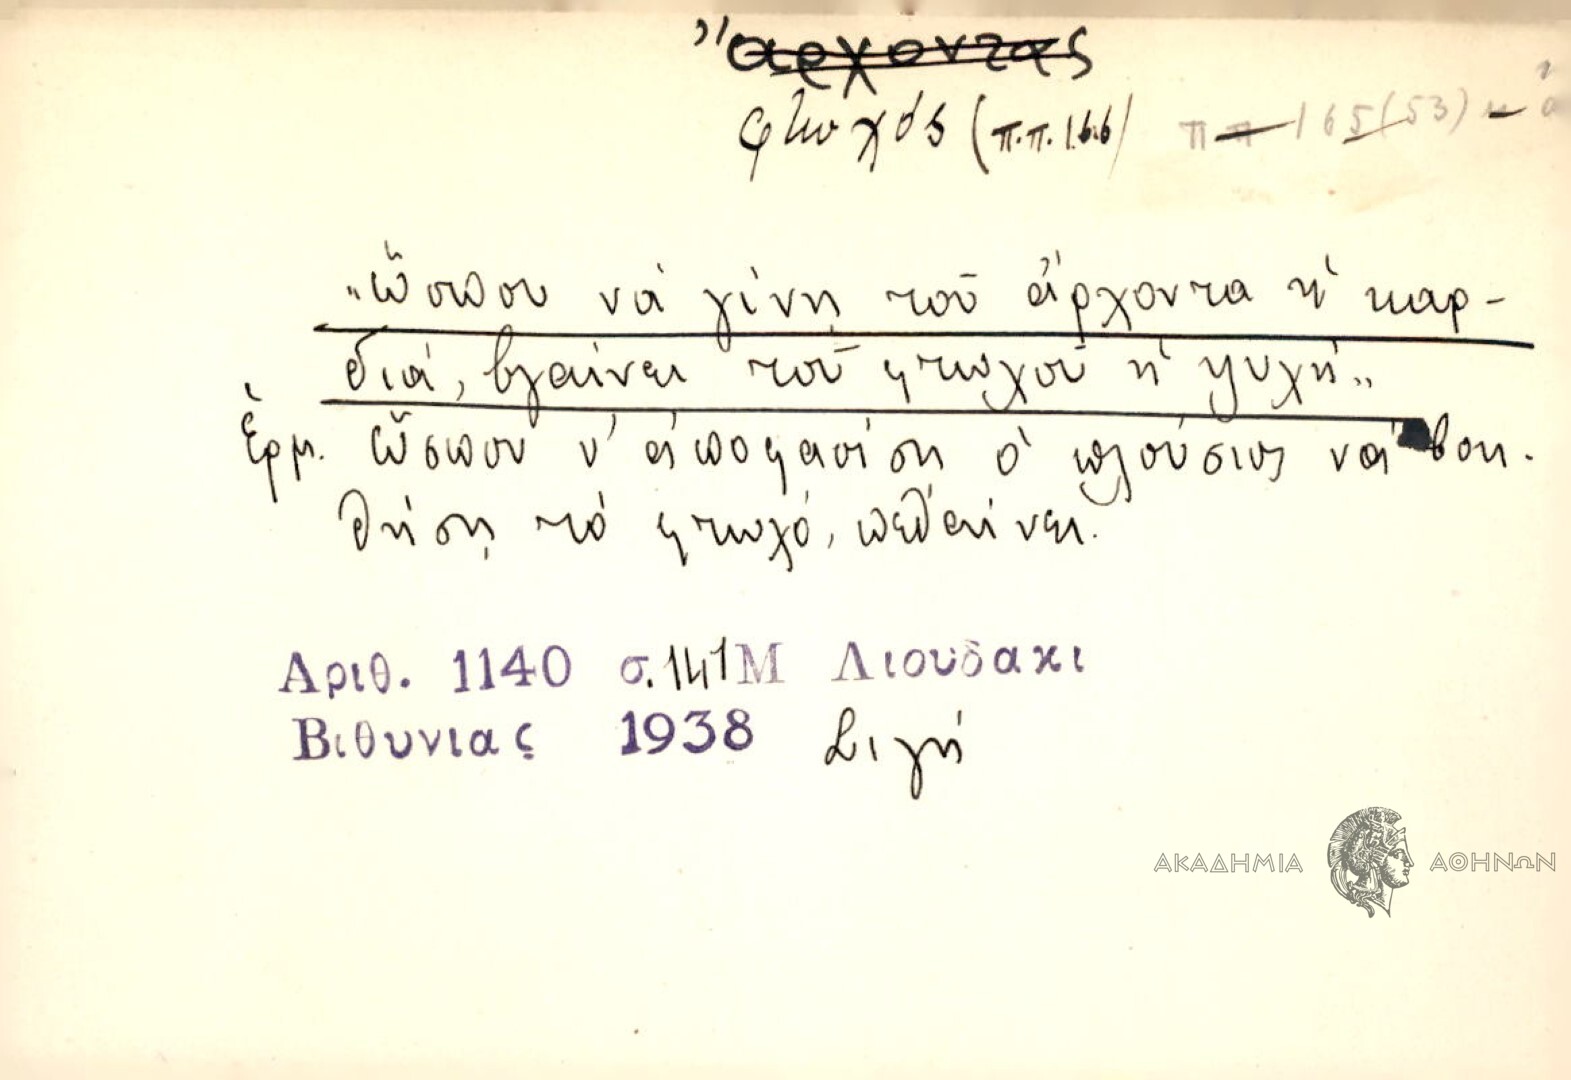 ἄρχοντας
φτωχός (π.π. 166) π π 165(53)
„ὥσπου νά γίνῃ τοῦ ἄρχοντα ἡ καρ-
διά, βγαίνει τοῦ φτωχοῦ ἡ ψυχή„
Ἑρμ. ὥσπου ν' ἀποφασίση ὁ πλούσιος νά βοη-
θήσῃ τό φτωχό, πεθαίνει.
Αριθ. 1140 σ. 141 Μ Λιουδακι
Βιθυνιας 1938 Σιγή
ΑΚΑΔΗΜΙΑ ΑΘΗΝΩΝ